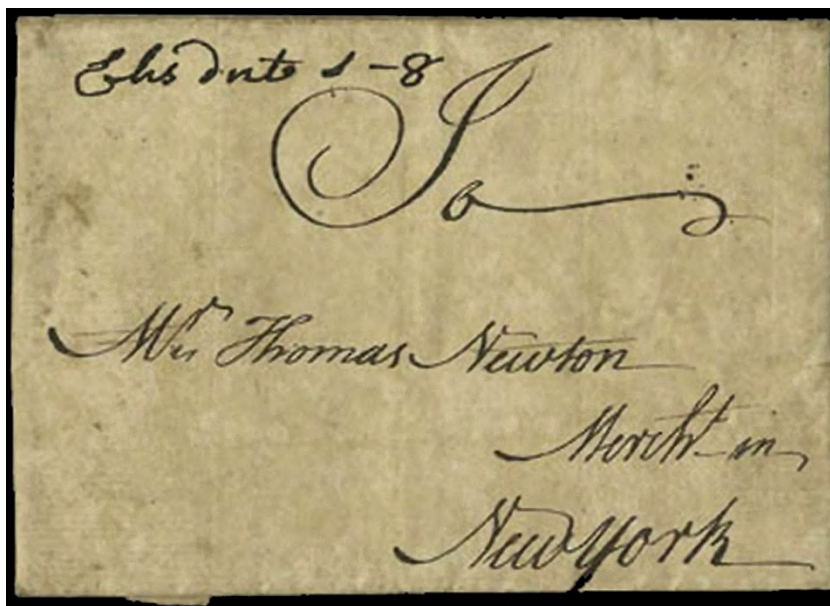 Ehs dwto 1-8
To
Mr Thomas Newton
Mercht in
New York